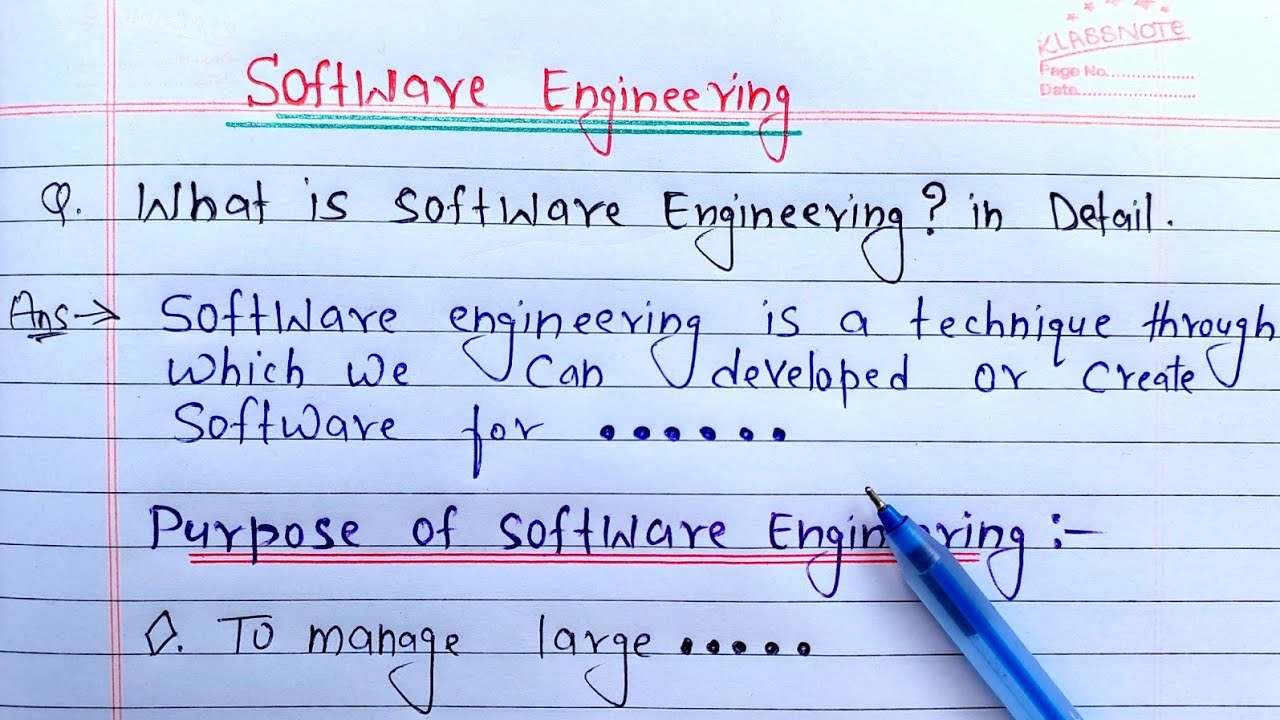 KLASSNOTE
Page No..................
Date........................
Software Engineering
Q. What is software Engineering? in Detail.
Ans→ Software engineering is a technique through
which we can developed or create
Software for ......
Purpose of software Engineering :-
◇. To manage large .....